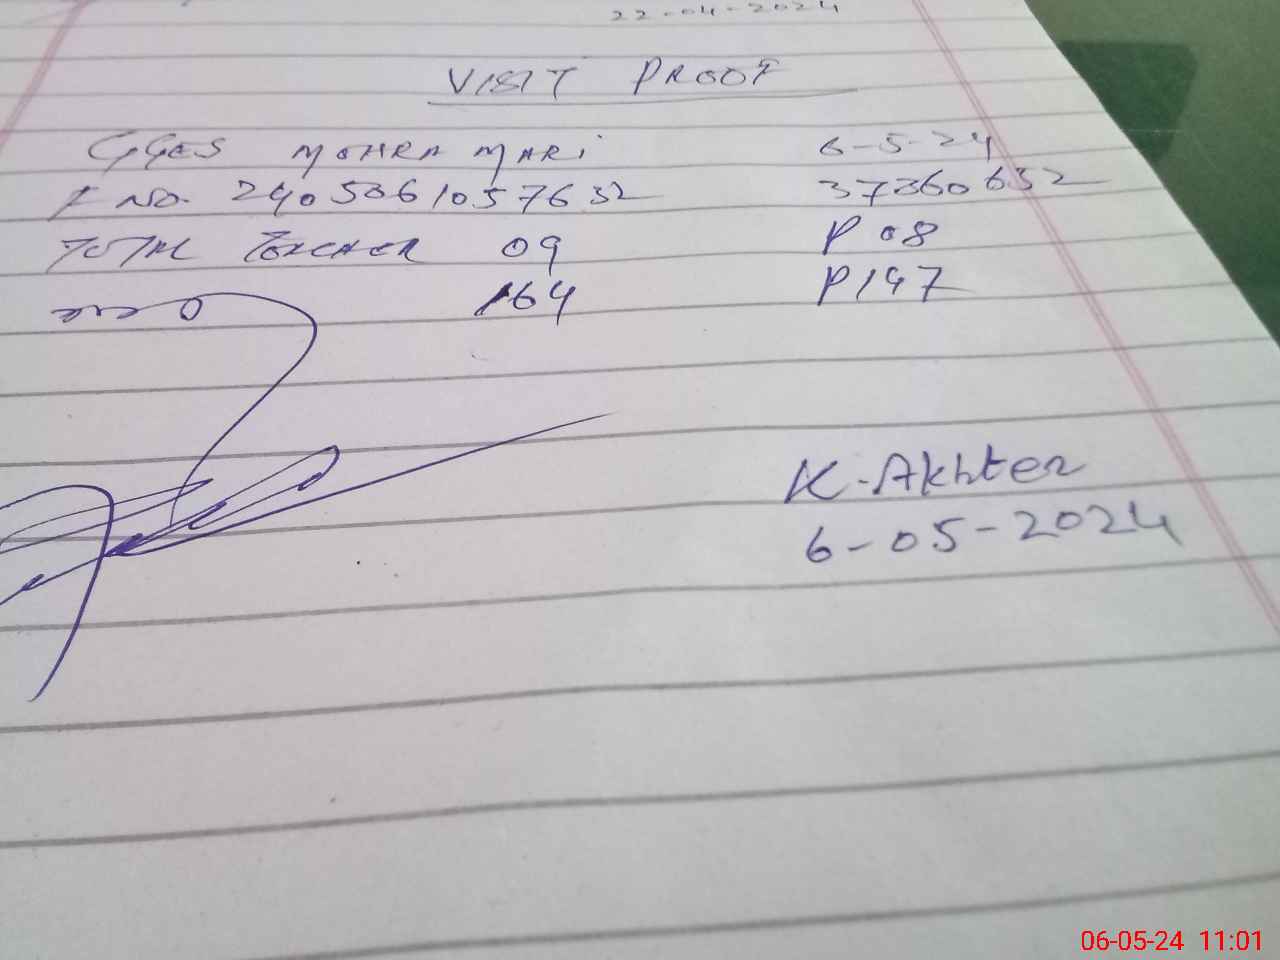 22-04-2024
VISIT PROOF
GGES MOHRA MARI 6-5-24
F NO. 2405061057632 37360632
TOTAL TEACHER 09 P 08
164 P 147
K. Akhter
6-05-2024
06-05-24 11:01